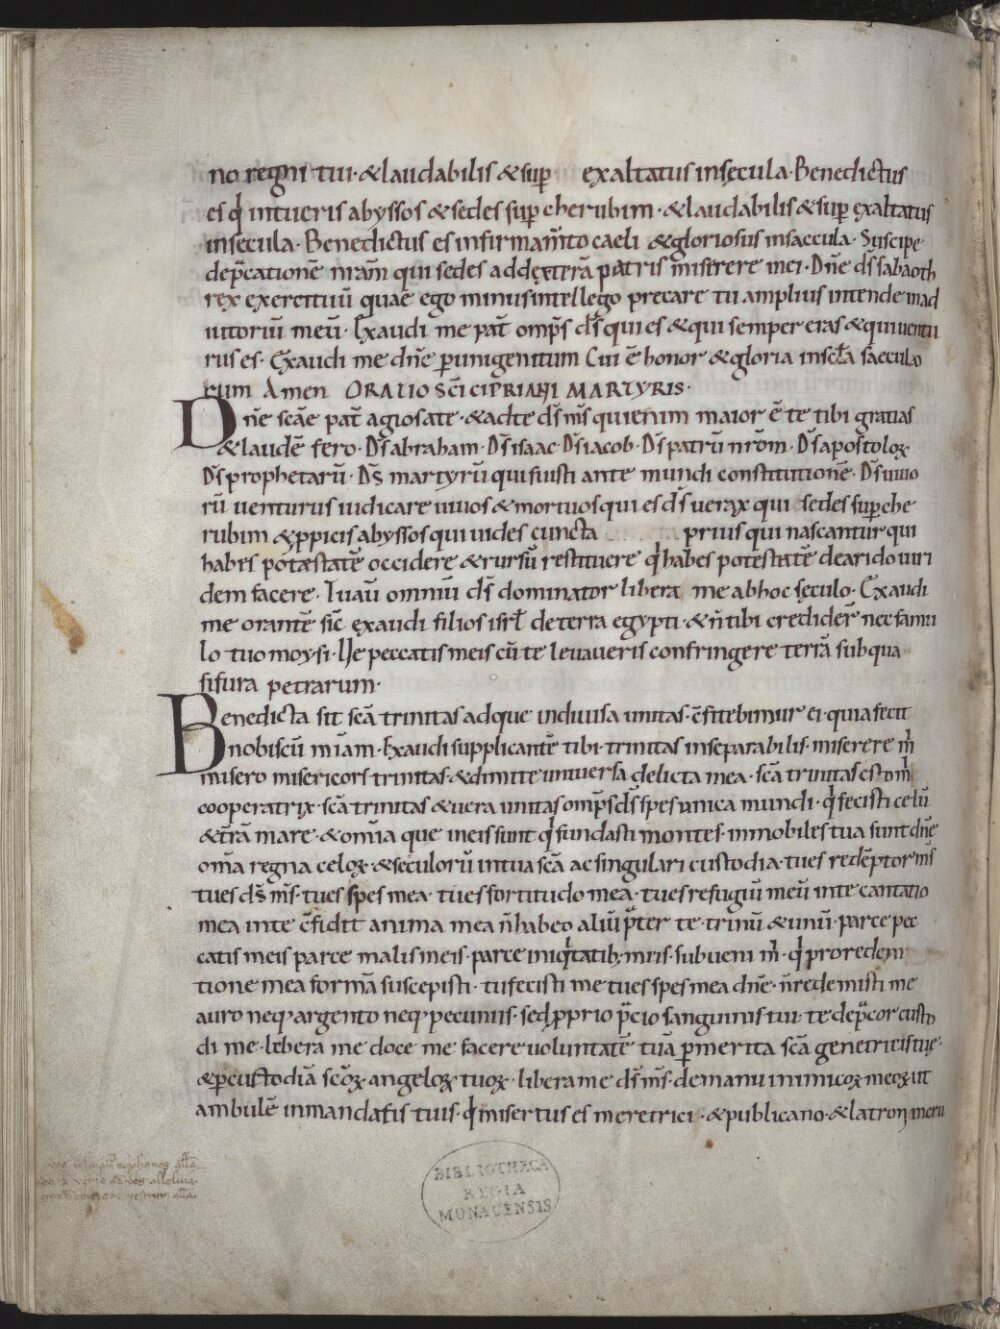 no regni tui · & laudabilis & sup̄ exaltatus insecula · Benedictus
es q̇ intueris abyssos & sedes sup̄ cherubim · & laudabilis & sup̄ ęxaltatus
insecula · Benedictus es infirmam̄to caeli & gloriosus insaecula · Suscipe
dep̄cationē nrām qui sedes addexterā patris miserere mei · Dn̄e ds̄ sabaoth
rex exercituū quae ego minus intellego precare tu amplius intende inad
iutoriū meū · Exaudi me pat̄ omp̄s ds̄ qui es & qui semper eras & qui uentu
rus es · Exaudi me dn̄e p̄ unigenitum Cui ē honor & gloria inscl̄a saeculo
rum Amen ORATIO SC̄I CIPRIANI MARTYRIS ·
Dn̄e scāe pat̄ agiosate · & adte ds̄ ms̄ quienim maior ē te tibi gratias
& laudē fero · Ds̄ abraham · Ds̄ isaac · Ds̄ iacob · Ds̄ patrū nrōm · Ds̄ apostoloꝝ
Ds̄ prophetarū · Ds̄ martyrū qui fuisti ante mundi constitutionē · Ds̄ uiuo
rū uenturus iudicare uiuos & mortuos qui es ds̄ uerax qui sedes sup̄ che
rubim & ꝓpicis abyssos qui uides cuncta prius qui nascantur qui
habes potæstatē occidere & rursū restituere q̇ habes potestatē dearido uiri
dem facere · Tuaū omniū ds̄ dominator libera me abhoc sęculo · Exaudi
me orantē sic̄ exaudi filios isrl̄ deterra egypti · & n̄ tibi credider̄ nec famu
lo tuo moysi · Ne peccatis meis cū te leuaueris confringere terrā sub qua
sisura petrarum ·
Benedicta sit scā trinitas adque indiuisa unitas · c̄fitebimur ei · quia fecit
nobiscū miām · Exaudi supplicantē tibi · trinitas inseparabilis · miserere m̊
misero misericors trinitas · & dimitte uniuersa delicta mea · scā trinitas esto m̊
cooperatrix · scā trinitas & uera unitas omp̄s ds̄ spes unica mundi · q̇ fecisti celū
& trā mare · & omīa que ineis sunt q̇ fundasti montes · inmobiles tua sunt dn̄e
omīa regna celoꝝ · & seculorū intua scā ac singulari custodia · tu es redēptor ms̄
tu es ds̄ ms̄ · tu es spes mea · tu es fortitudo mea · tu es refugiū meū inte cantatio
mea inte c̄fidit anima mea n̄ habeo aliū p̄ter te · trinū & unū · parce pec
catis meis parce malis meis · parce iniq̇tatib; miis · subueni m̊ · q̇ pro redem
tione mea formā suscepisti · tu fecisti me tu es spes mea dn̄e · n̄ redemisti me
auro neq; argento neq; pecuniis · sed ꝓprio p̄cio sanguinis tui · te dep̄cor custo
di me · lebera me doce me facere uoluntatē tuā p̄ merita scā genetricis tuę ·
& p̄ custodiā scōꝝ angeloꝝ tuoꝝ · libera me ds̄ ms̄ · de manu inimicoꝝ meoꝝ ut
ambulē inmandatis tuis · q̇ misertus es meretrici · & publicano · & latroni
BIBLIOTHECA
REGIA
MONACENSIS